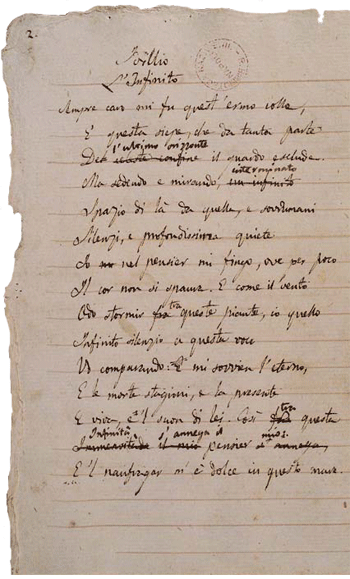 2.
Idillio
L'Infinito
Sempre caro mi fu quest'ermo colle,
E questa siepe, che da tanta parte
l'ultimo orizzonte
Del celeste confine il guardo esclude.
interminato
Ma sedendo e mirando, un infinito
Spazio di là da quella, e sovrumani
Silenzi, e profondissima quiete
Io nel pensier mi fingo, ove per poco
Il cor non si spaura. E come il vento
tra
Odo stormir fra queste piante, io quello
Infinito silenzio a questa voce
Vo comparando: E mi sovvien l'eterno,
E le morte stagioni, e la presente
E viva, e 'l suon di lei. Così fra questa
tra
Infinità s'annega il mio:
Immensitade il mio pensier s'annega,
E 'l naufragar m'è dolce in questo mare.